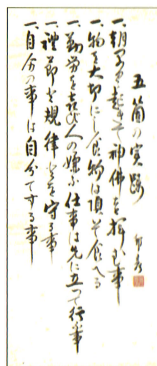 五箇の実践
一、朝早く起きて神佛を拜む事
一、物を大切にし食物は頂いて食べる
一、勤労を喜び人の嫌ふ仕事は先に立つて行ふ事
一、禮節を規律を守る事
一、自分の事は自分でする事